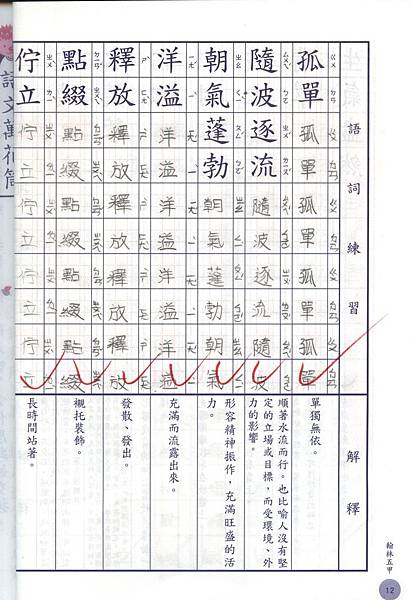 語詞練習
解釋
孤單孤單孤單孤單孤單
單獨無依。
隨波逐流隨波逐流隨波
順著水流而行。也比喻人沒有堅
定的立場或目標，而受環境、外
力的影響。
朝氣蓬勃朝氣蓬勃朝氣
形容精神振作，充滿旺盛的活
力。
洋溢洋溢洋溢洋溢洋溢
充滿而流露出來。
釋放釋放釋放釋放釋放
發散、發出。
點綴點綴點綴點綴點綴
襯托裝飾。
佇立佇立佇立佇立佇立
長時間站著。
語文萬花筒
翰林五甲
12